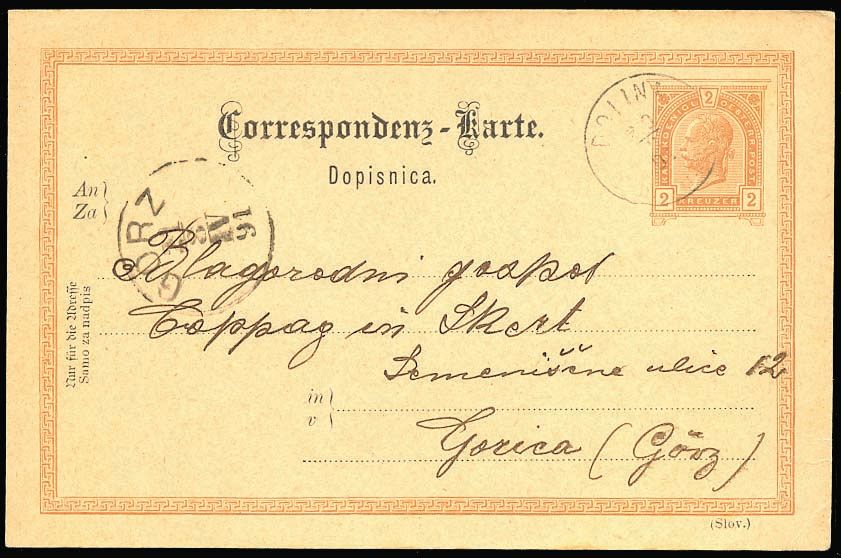 Correspondenz-Karte.
Dopisnica.
KAIS. KOENIGL. OESTERR. POST
2
2 KREUZER 2
DOLINA
GÖRZ
IV
91
An
Za
Blagorodni gospod
Coppag in Skert
Semeniščne ulice 12
in
v
Gorica (Görz)
Nur für die Adresse
Samo za nadpis
(Slov.)